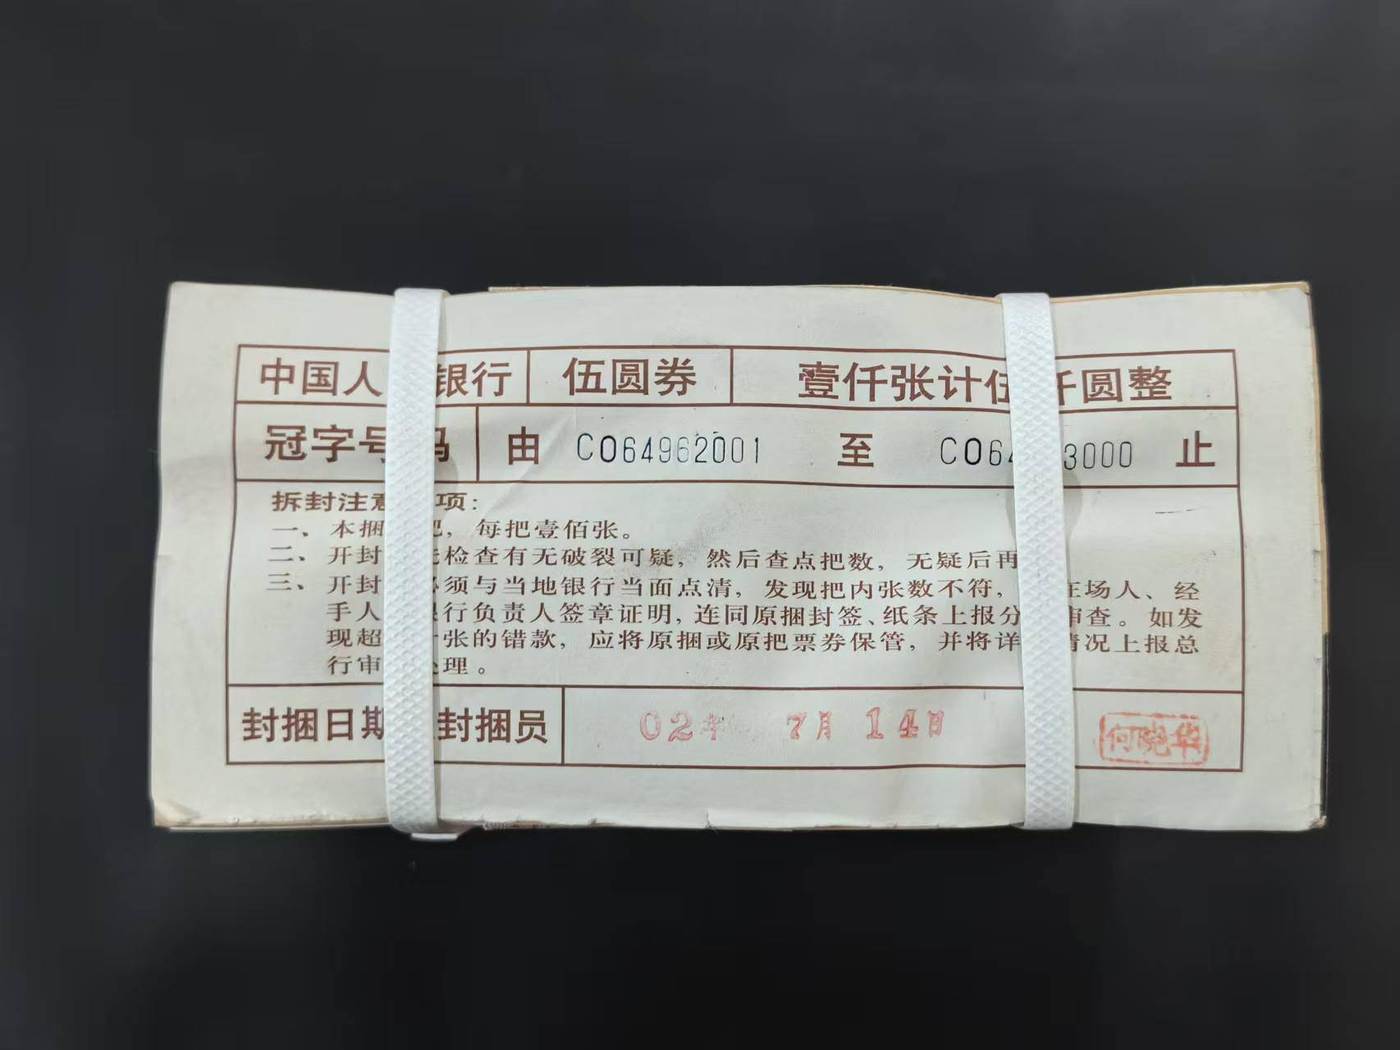 中国人 银行 伍圆券 壹仟张计伍 仟圆整
冠字号码 由 CO64962001 至 CO64 3000 止
拆封注意 项：
一、本捆 把，每把壹佰张。
二、开封 先检查有无破裂可疑，然后查点把数，无疑后再
三、开封 必须与当地银行当面点清，发现把内张数不符， 在场人、经
手人 银行负责人签章证明，连同原捆封签、纸条上报分 审查。如发
现超 张的错款，应将原捆或原把票券保管，并将详 情况上报总
行审 处理。
封捆日期 封捆员 02年 7月 14日 何晓华